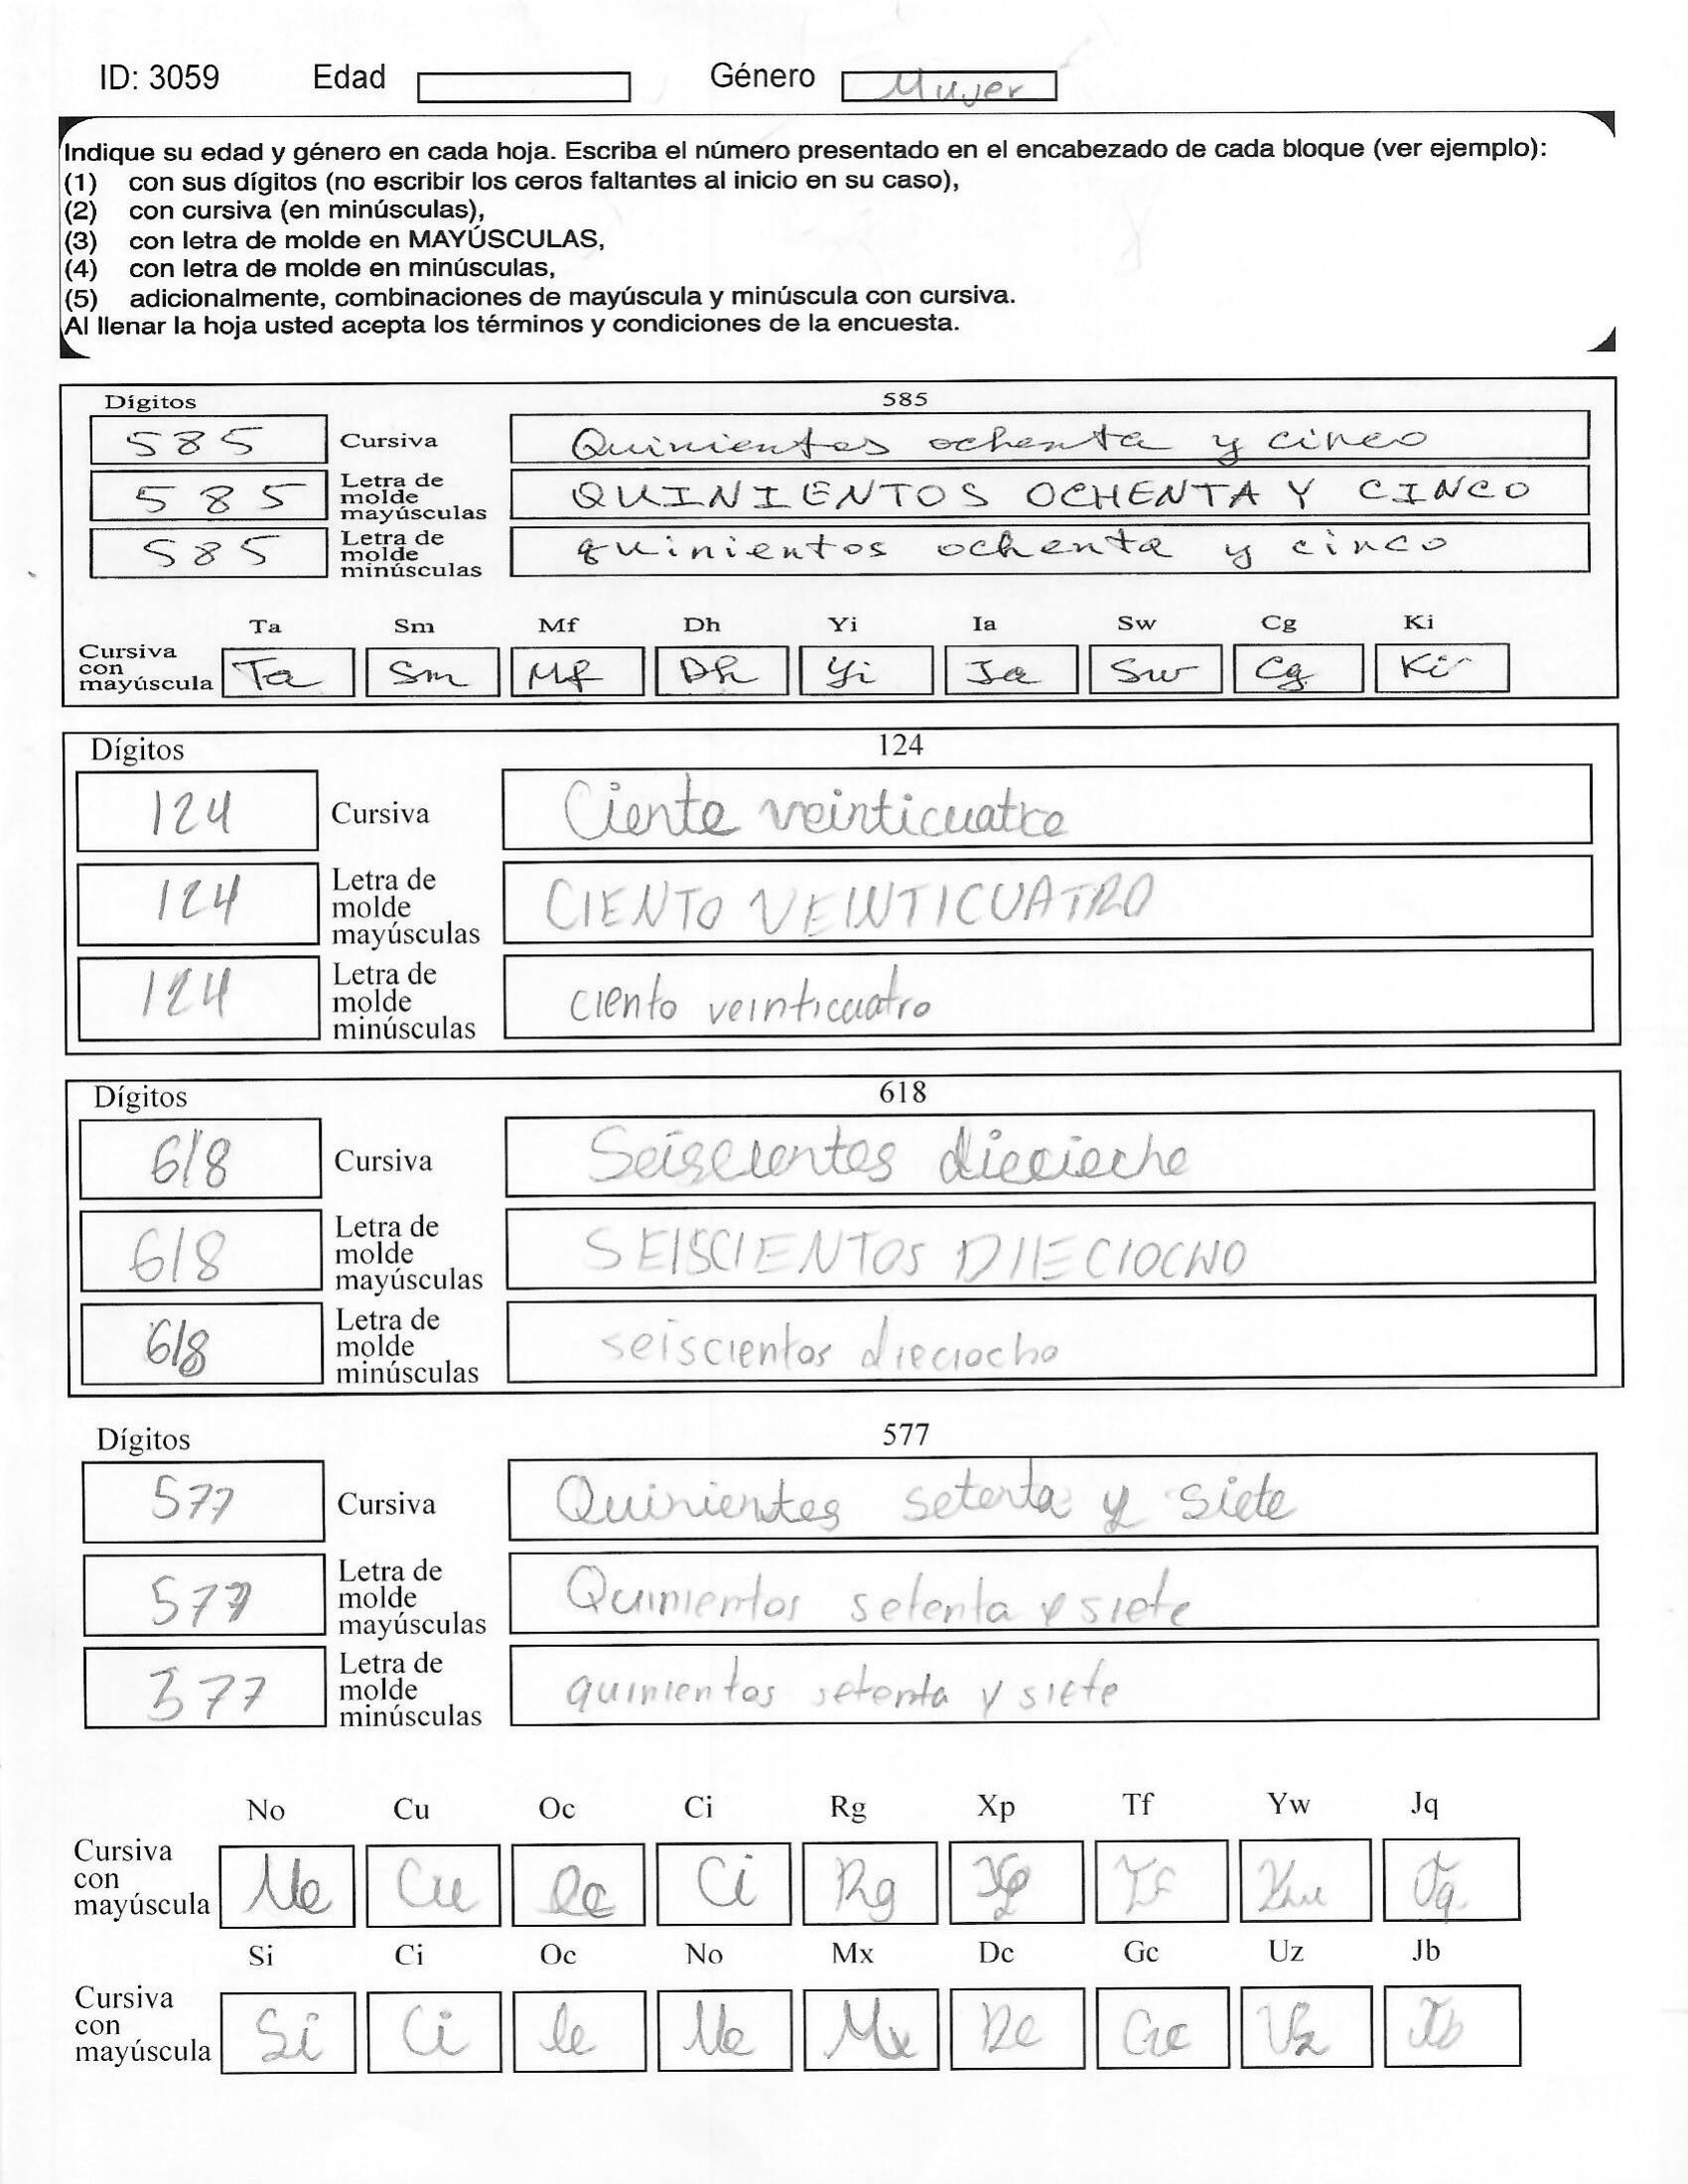 ID: 3059 Edad Género Mujer
Indique su edad y género en cada hoja. Escriba el número presentado en el encabezado de cada bloque (ver ejemplo):
(1) con sus dígitos (no escribir los ceros faltantes al inicio en su caso),
(2) con cursiva (en minúsculas),
(3) con letra de molde en MAYÚSCULAS,
(4) con letra de molde en minúsculas,
(5) adicionalmente, combinaciones de mayúscula y minúscula con cursiva.
Al llenar la hoja usted acepta los términos y condiciones de la encuesta.
Dígitos 585
585 Cursiva Quinientos ochenta y cinco
585 Letra de molde mayúsculas QUINIENTOS OCHENTA Y CINCO
585 Letra de molde minúsculas quinientos ochenta y cinco
Ta Sm Mf Dh Yi Ia Sw Cg Ki
Cursiva con mayúscula Ta Sm Mf Dh Yi Ia Sw Cg Ki
Dígitos 124
124 Cursiva Ciento veinticuatro
124 Letra de molde mayúsculas CIENTO VEINTICUATRO
124 Letra de molde minúsculas ciento veinticuatro
Dígitos 618
618 Cursiva Seiscientos dieciocho
618 Letra de molde mayúsculas SEISCIENTOS DIIECIOCHO
618 Letra de molde minúsculas seiscientos dieciocho
Dígitos 577
577 Cursiva Quinientos setenta y siete
577 Letra de molde mayúsculas Quinientos setenta y siete
577 Letra de molde minúsculas quinientos setenta y siete
No Cu Oc Ci Rg Xp Tf Yw Jq
Cursiva con mayúscula No Cu Oc Ci Rg Xp Tf Yw Jq
Si Ci Oc No Mx Dc Gc Uz Jb
Cursiva con mayúscula Si Ci Oc No Mx Dc Gc Uz Jb